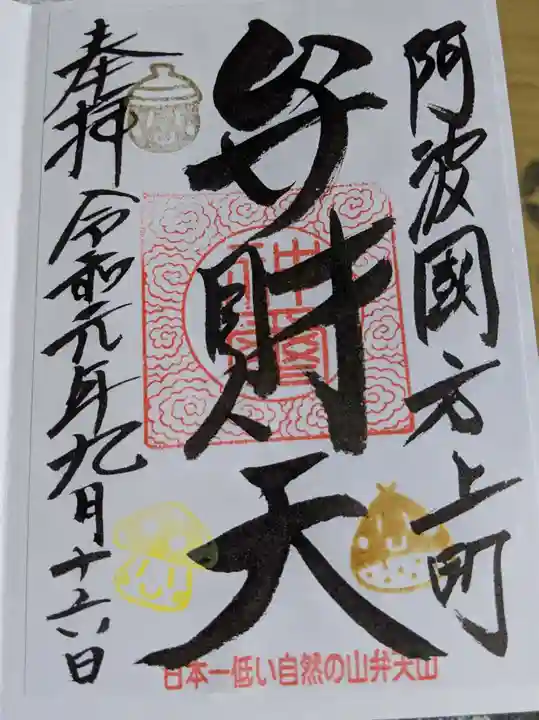 阿波國方上町
弁財天
奉拝 令和元年九月十六日
日本一低い自然の山弁天山